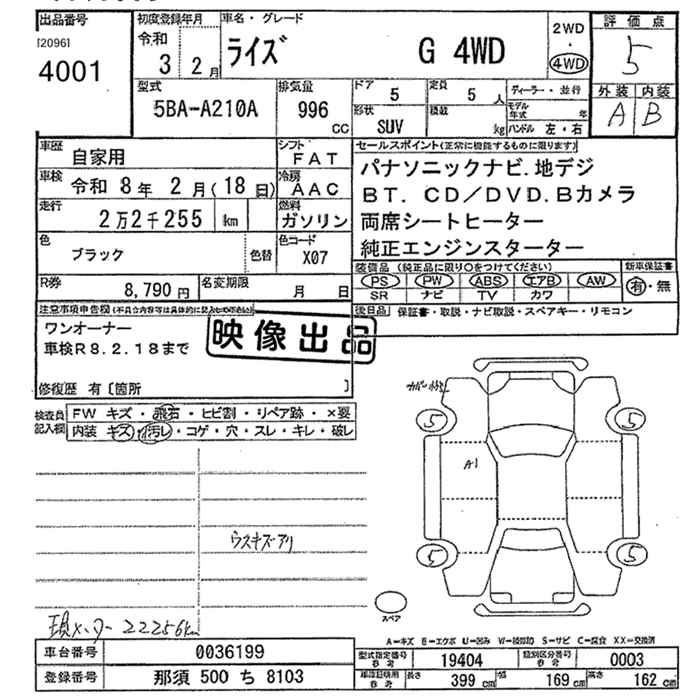 出品番号
[2096]
4001
初度登録年月
令和
3 2月
車名・グレード
ライズ G 4WD
2WD
・
4WD
評価点
5
外装 内装
A B
型式
5BA-A210A
排気量
996
CC
ドア
5
定員
5 人
形状
SUV
積載
kg
ディーラー・並行
モデル年式 年
ハンドル 左・右
車歴
自家用
車検
令和 8年 2月(18日)
走行
2万2千255 km
色
ブラック
色替
シフト
FAT
冷房
AAC
燃料
ガソリン
色コード
X07
R券
8,790円
名変期限
月 日
セールスポイント(正常に機能するものに限ります)
パナソニックナビ.地デジ
BT. CD/DVD.Bカメラ
両席シートヒーター
純正エンジンスターター
装備品 (純正品に限り○をつけてください)
PS PW ABS エアB AW
SR ナビ TV カワ
新車保証書
有・無
後日品 保証書・取説・ナビ取説・スペアキー・リモコン
注意事項申告欄(不具合内容等は具体的に記入して下さい)
ワンオーナー
車検R8.2.18まで
映像出品
修復歴 有〔箇所 〕
検査員記入欄
FW キズ・飛石・ヒビ割・リペア跡・×要
内装 キズ・汚レ・コゲ・穴・スレ・キレ・破レ
ウスキズアリ
現メーター 22256km
5
5
A1
5
5
スペア
A=キズ B=エクボ U=凹み W=補修跡 S=サビ C=腐食 XX=交換済
車台番号 0036199
登録番号 那須 500 ち 8103
型式指定番号 参考 19404
類別区分番号 参考 0003
車検証明用 参考 長さ 399 cm 幅 169 cm 高さ 162 cm